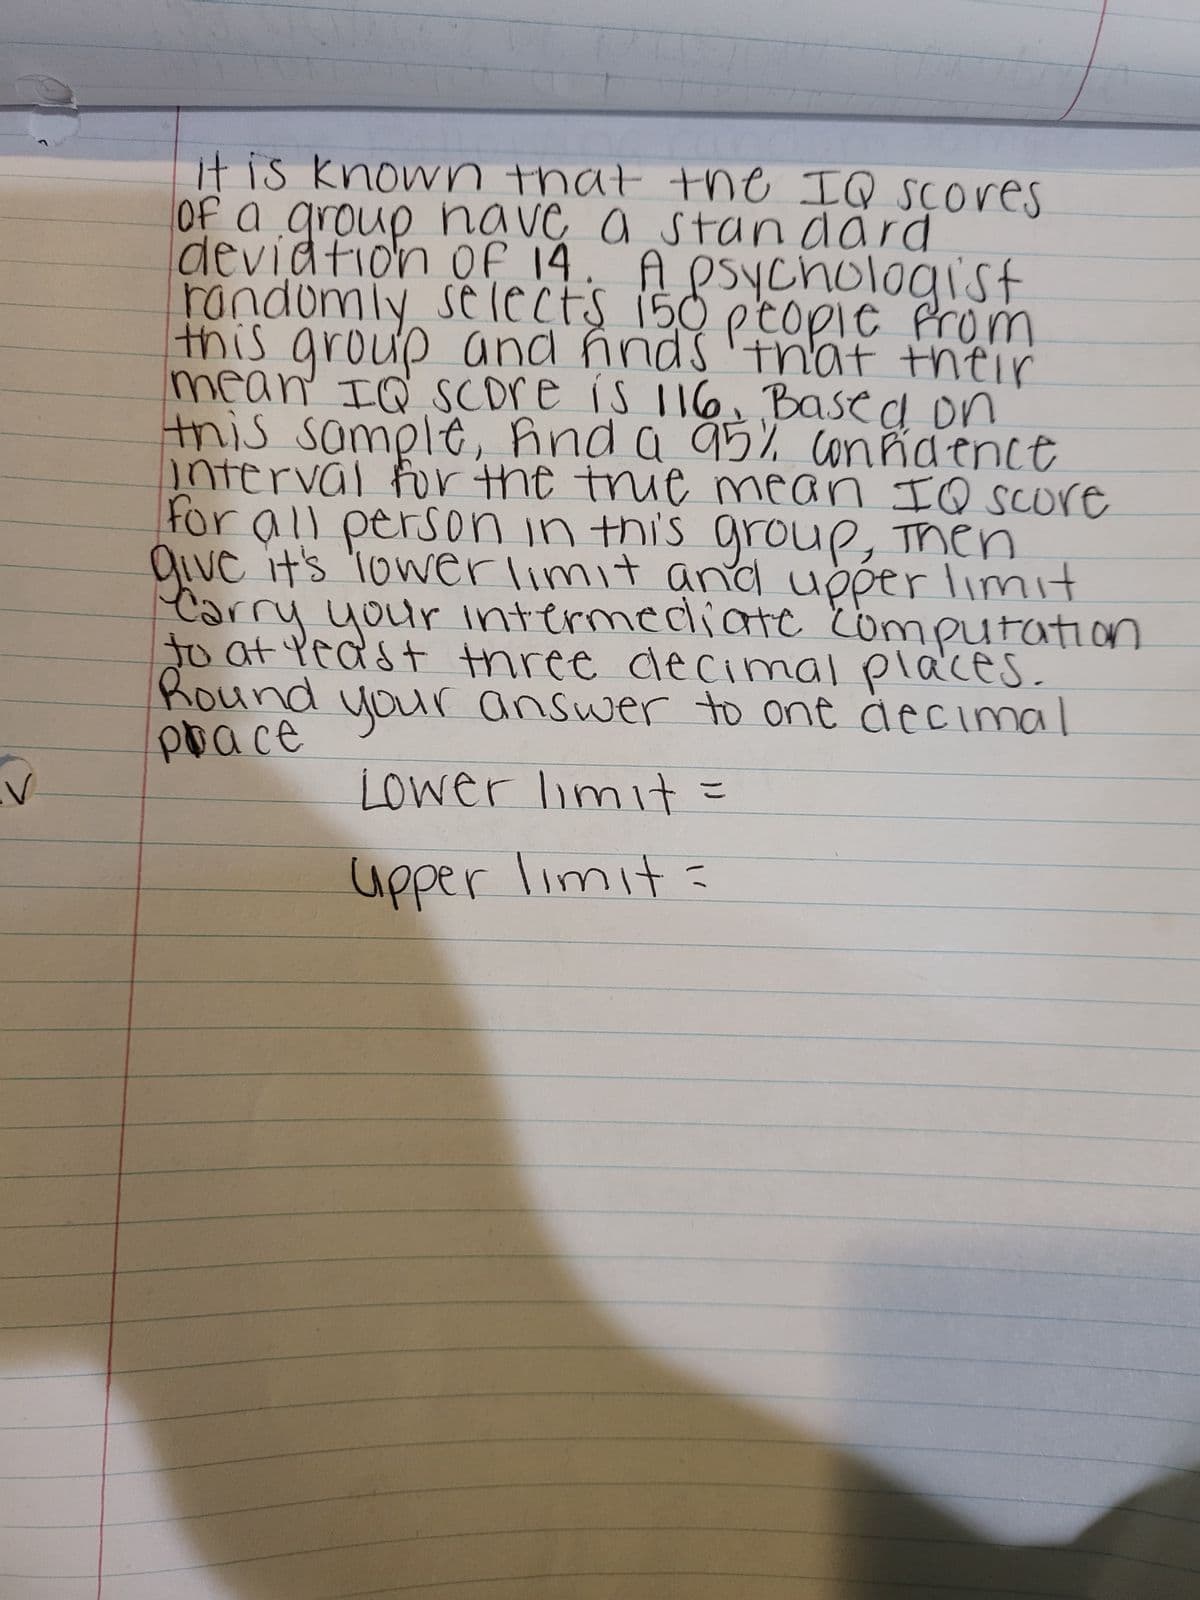 it is known that the IQ scores
of a group have a standard
deviation of 14. A psychologist
randomly selects 150 people from
this group and finds that their
mean IQ score is 116. Based on
this sample, find a 95% confidence
interval for the true mean IQ score
for all person in this group, Then
give it's lower limit and upper limit
Carry your intermediate computation
to at least three decimal places.
Round your answer to one decimal
place
Lower limit =
upper limit =